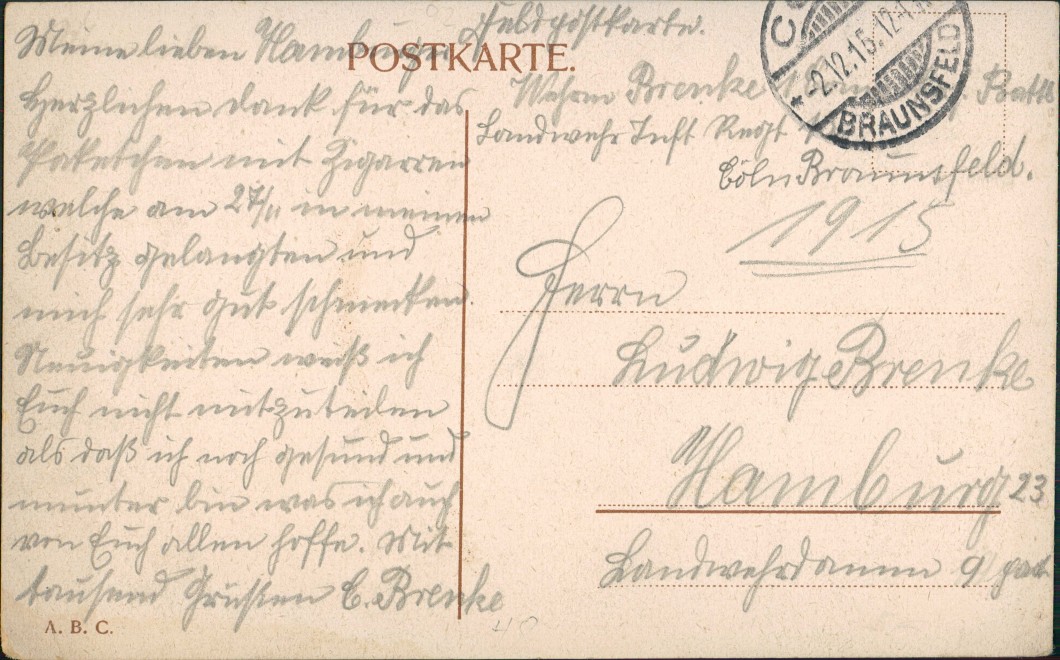 Meine lieben Hamburger
Herzlichen Dank für das
Paketchen mit Zigarren
welche am 27/11 in meinen
Besitz gelangten und
mich sehr gut schmecken.
Neuigkeiten weiß ich
Euch nicht mitzuteilen
als daß ich noch gesund und
munter bin was ich auch
von Euch allen hoffe. Mit
tausend Grüßen C. Brenke
A. B. C.
POSTKARTE.
Feldpostkarte.
Wehrm Brenke 1. Batl
Landwehr Inft Regt
Cöln Braunsfeld.
1915
C
-2.12.15.12-1
* BRAUNSFELD
Herrn
Ludwig Brenke
Hamburg 23
Landwehrdamm 9 part